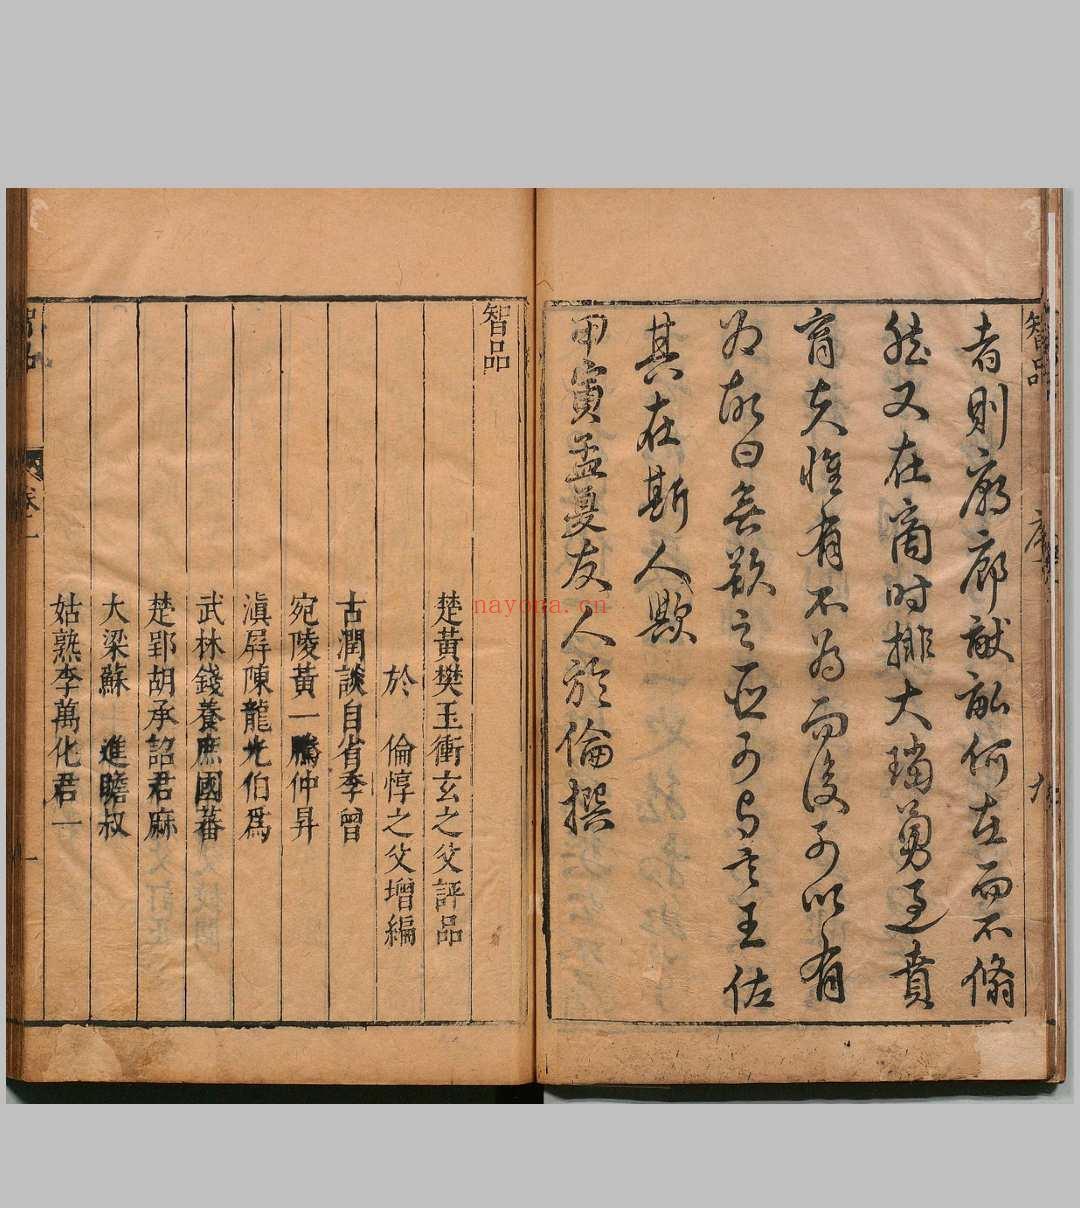 智品
序
九
者則廟廊猷訟何在而不備
然又在商時排大璫勇過賁
育夫惟有不為而後可以有
為故曰無欲之臣可與言王佐
其在斯人歟
甲寅孟夏友人於倫撰
智品
楚黃樊玉衝玄之父評品
於倫惇之父增編
古潤談自省季曾
宛陵黃一騰仲昇
滇屏陳龍光伯為
武林錢養庶國蕃
楚郢胡承詔君麻
大梁蘇進瞻叔
姑熟李萬化君一
卷一
一
nayona.cn